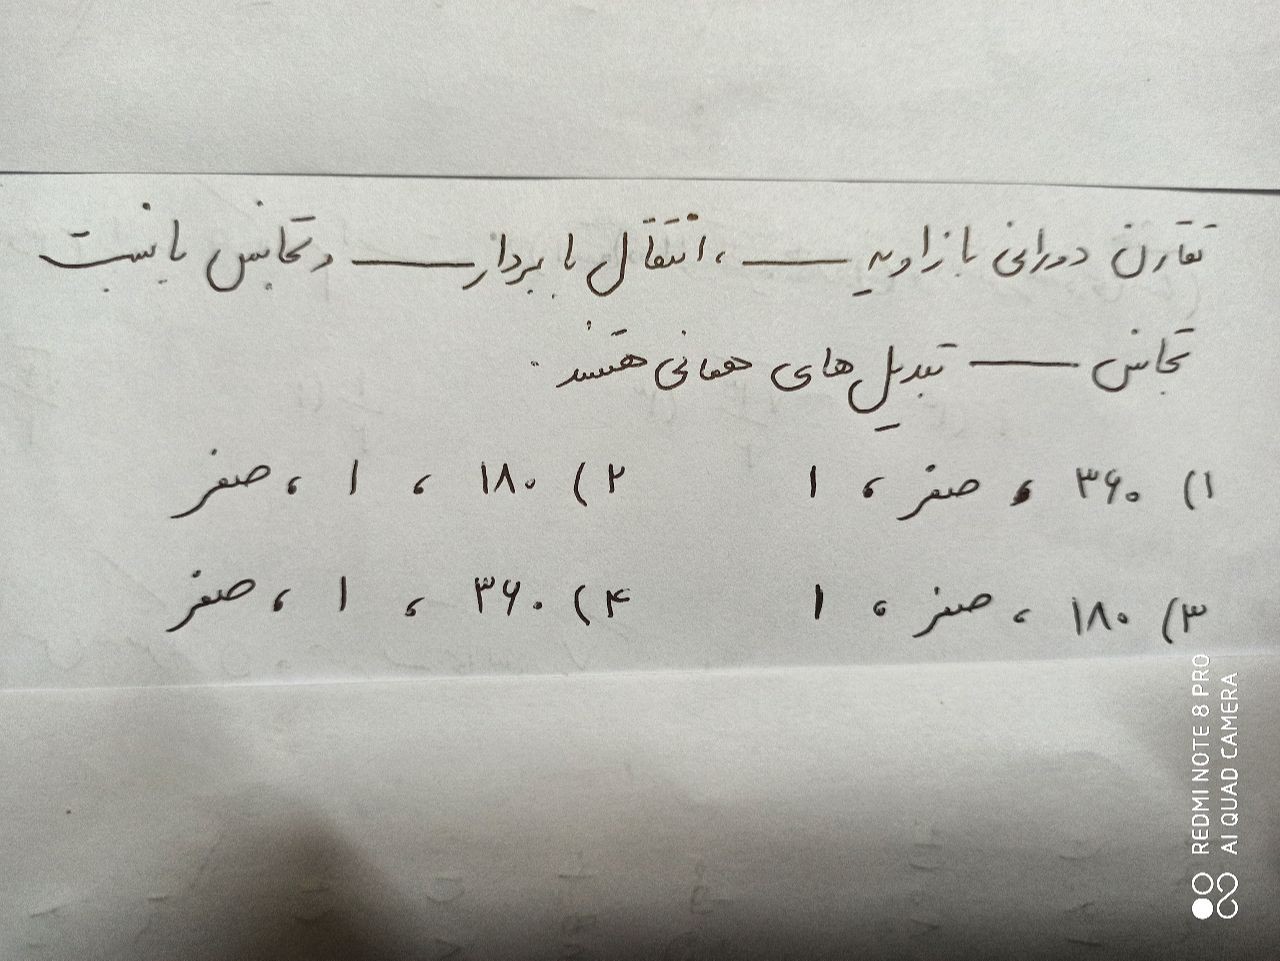 تقارن دورانی با زاویه ــــــ ، انتقال با بردار ــــــ و تجانس با نسبت
تجانس ــــــ تبدیل های همانی هستند .
۱) ۳۶۰ ، صفر ، ۱ ۲) ۱۸۰ ، ۱ ، صفر
۳) ۱۸۰ ، صفر ، ۱ ۴) ۳۶۰ ، ۱ ، صفر
REDMI NOTE 8 PRO
AI QUAD CAMERA